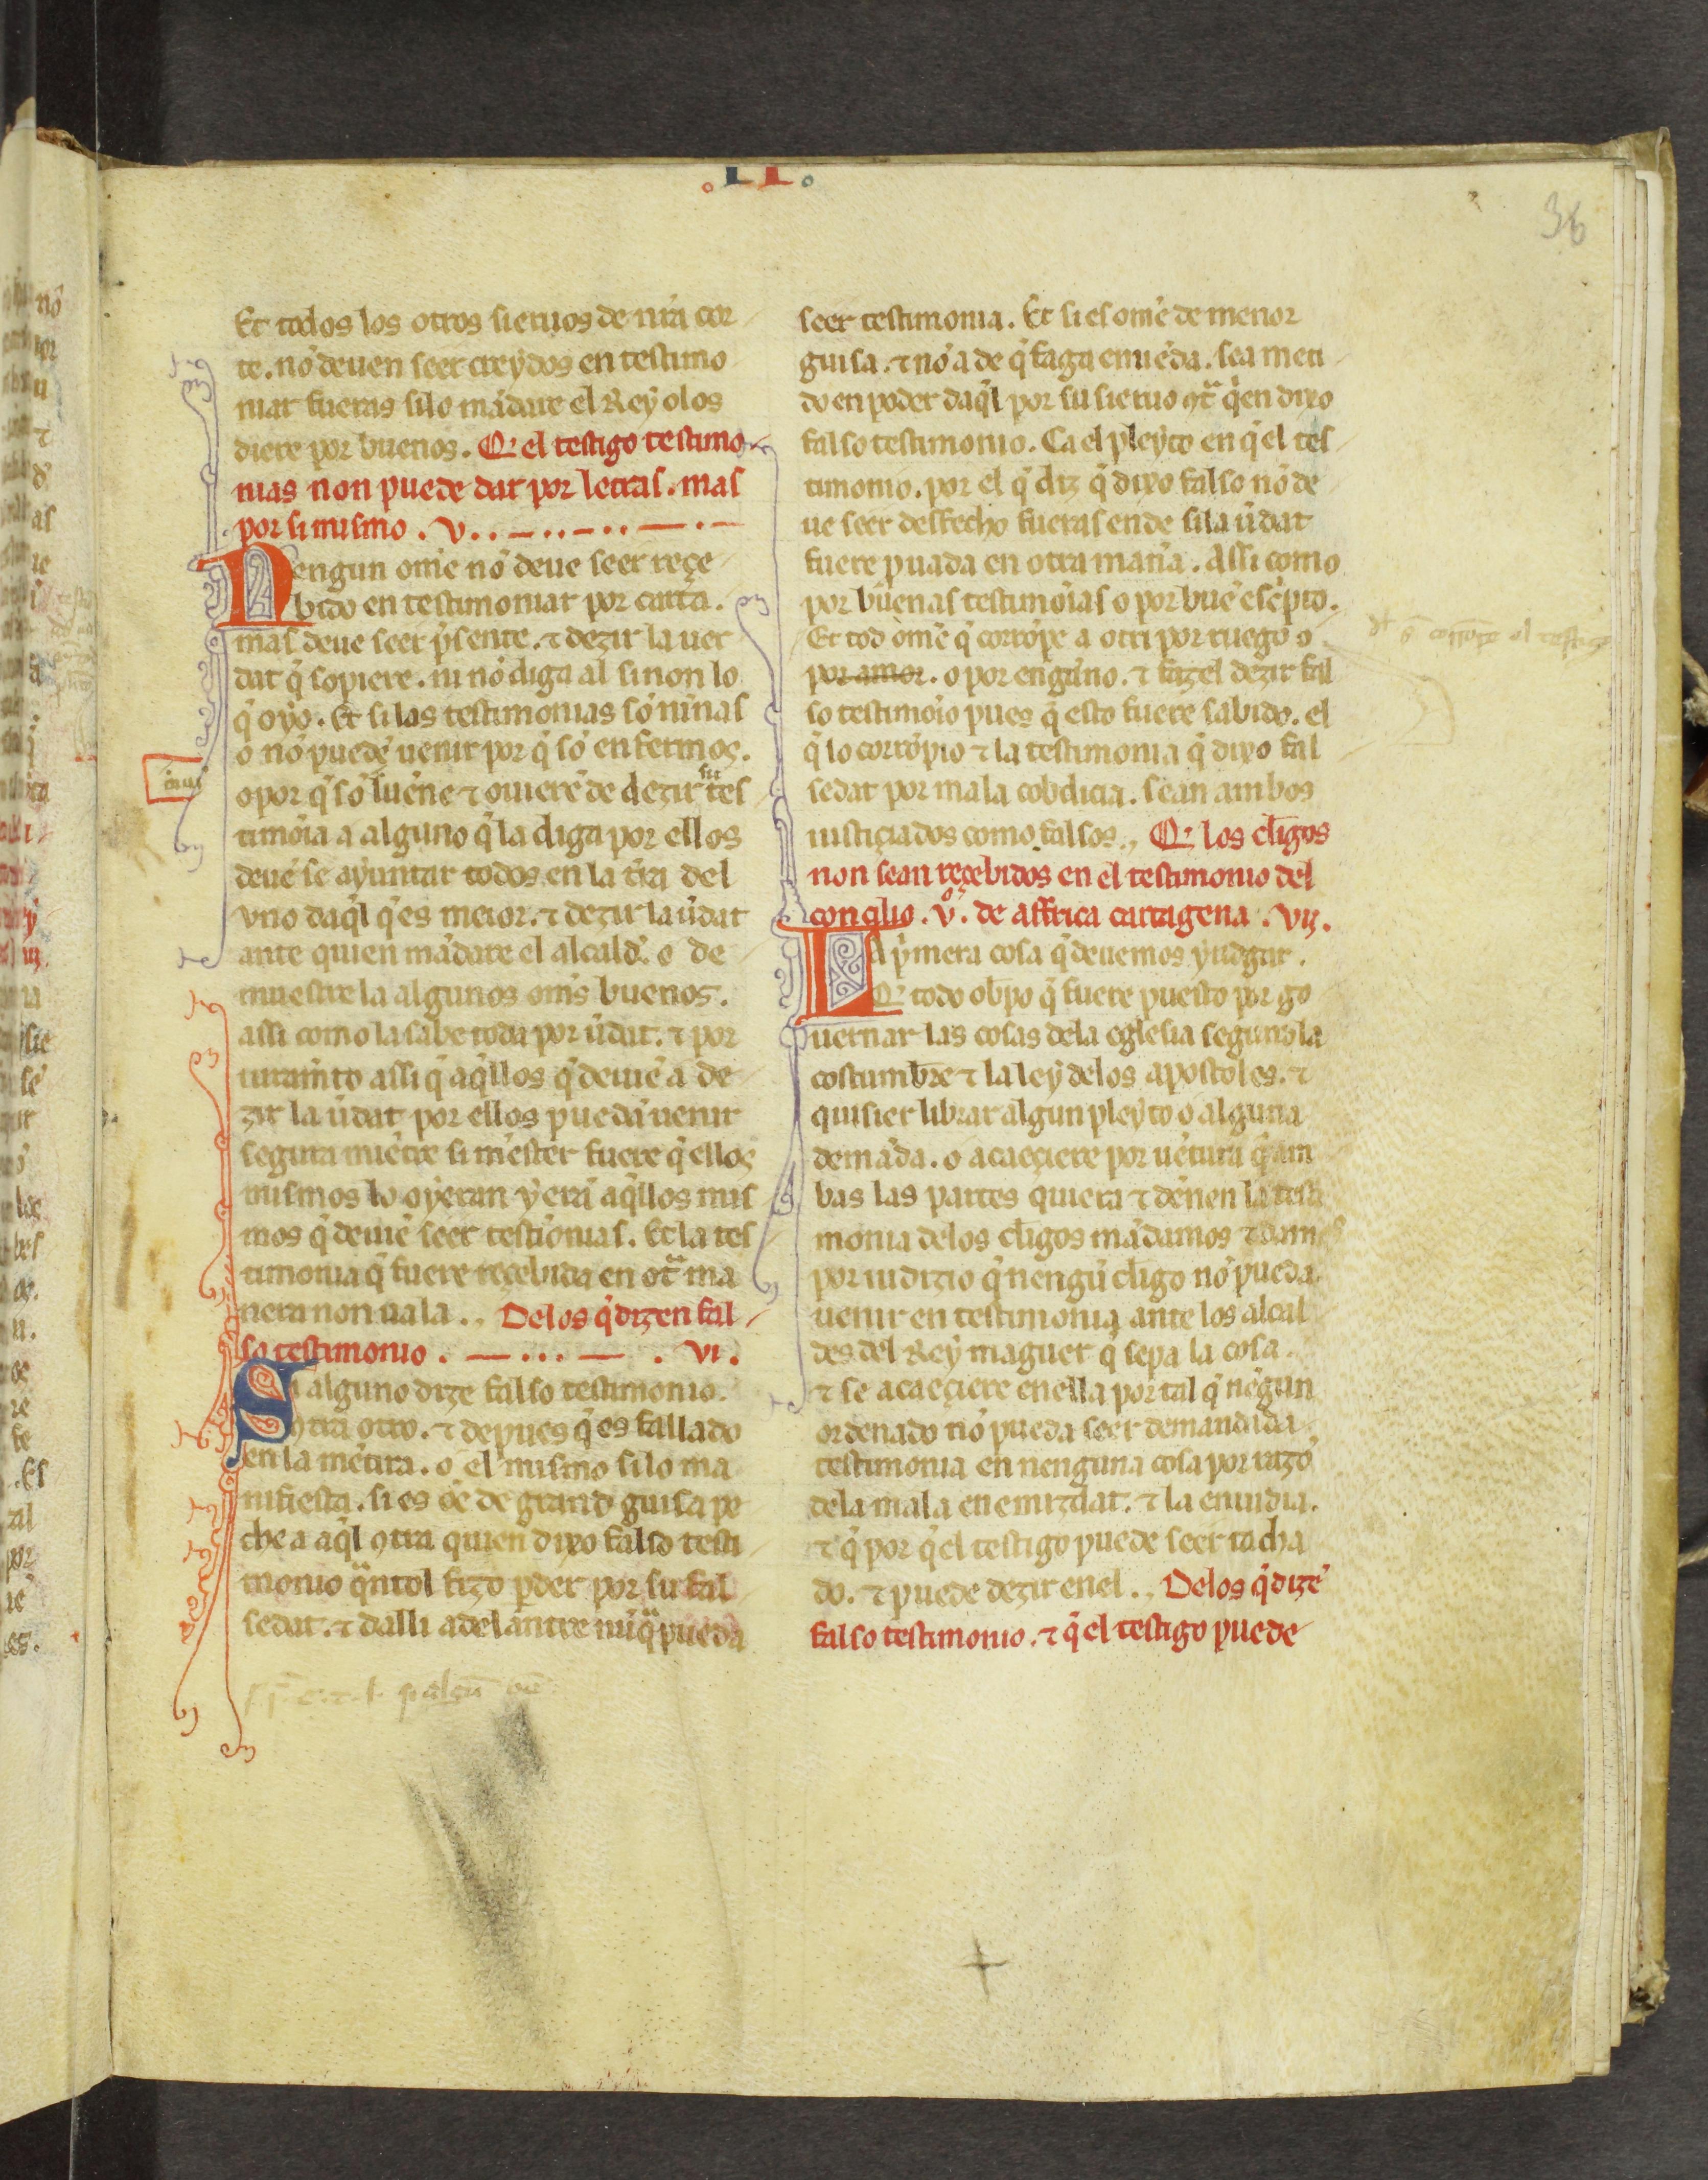 .II.
36
Et todos los otros sieruos de nr̃a cor
te. nõ deuen seer creydos en testimo
niar fueras silo mãdare el Rey olos
diere por buenos. Q̃ el testigo testimo
nias non puede dar por letras. mas
por si mismo . v . . — . . — . . — . —
Nengun om̃e nõ deue seer reçe
bido en testimoniar por carta.
mas deue seer p̃sente. ⁊ dezir la uer
dat q̃ sopiere. ni nõ diga al sinon lo
q̃ oyo. Et si las testimonias sõ nin̄as
o nõ puedẽ uenir por q̃ sõ enfermos.
o por q̃ sõ luẽne ⁊ ouierẽ de dezir su tes
timõia a alguno q̃ la diga por ellos
deuẽ se ayuntar todos en la tr̃a del
vno daq̃l q̃ es meior. ⁊ dezir la ũdat
ante quien mãdare el alcald̃. o de
muestre la algunos om̃s buenos.
assi como la sabe toda por ũdat. ⁊ por
iuram̃to assi q̃ aq̃llos q̃ deuiẽ a de
zir la ũdat por ellos puedã uenir
segura miẽtre si mester fuere q̃ ellos
mismos lo oyeran y erã aq̃llos mis
mos q̃ deuiẽ seer testiõnias. Et la tes
timonia q̃ fuere reçebida en ot̃ ma
nera non uala . . Delos q̃ dizen fal
so testimonio . — . . . — . vi .
Si alguno dize falso testimonio.
ꝯtra otro. ⁊ depues q̃ es fallado
en la mẽtira. o el mismo silo ma
nifiesta. si es õe de grand guisa pe
che a aq̃l ꝯtra quien dixo falso testi
monio q̃ntol fizo ꝑder por su fal
sedat. ⁊ dalli adelantre nũq̃ pueda
seer testimonia. Et si es om̃e de menor
guisa. ⁊ nõ a de q̃ faga emiẽda. sea meti
do en poder daq̃l por su sieruo ꝯt̃ q̃en dixo
falso testimonio. Ca el pleyto en q̃ el tes
timonio. por el q̃ diz q̃ dixo falso nõ de
ue seer desfecho fueras ende si la ũdat
fuere ꝓuada en otra man̄a. Assi como
por buenas testimõias o por buẽ esc̃pto.
Et tod om̃e q̃ corrõpe a otri por ruego o
por amor. o por engãno. ⁊ fazel dezir fal
so testimõio pues q̃ esto fuere sabido. el
q̃ lo corrõpio ⁊ la testimonia q̃ dixo fal
sedat por mala cobdicia. sean ambos
iustiçiados como falsos., Q̃ los cl̃igos
non sean reçebidos en el testimonio del
conçilio . vº. de affrica cartagena . vij.
La p̃mera cosa q̃ deuemos yudgar.
Q̃ todo ob̃po q̃ fuere puesto por go
uernar las cosas dela eglesia segund la
costumbre ⁊ la ley delos apostoles. ⁊
quisier librar algun pleyto o alguna
demãda. o acaeçiere por uẽtura q̃ am
bas las partes quierã ⁊ dẽnen la testi
monia delos cl̃igos mãdamos ⁊ dam̃s
por iudizio q̃ nengũ cl̃igo nõ pueda
uenir en testimonia ante los alcal
des del Rey maguer q̃ sepa la cosa.
⁊ se acaeçiere en ella por tal q̃ nẽgun
ordenado nõ pueda seer demandada
testimonia en nenguna cosa por razõ
dela mala enemizdat. ⁊ la enuidia.
⁊ q̃ por q̃ el testigo puede seer tacha
do. ⁊ puede dezir en el . . Delos q̃ dizẽ
falso testimonio. ⁊ q̃ el testigo puede